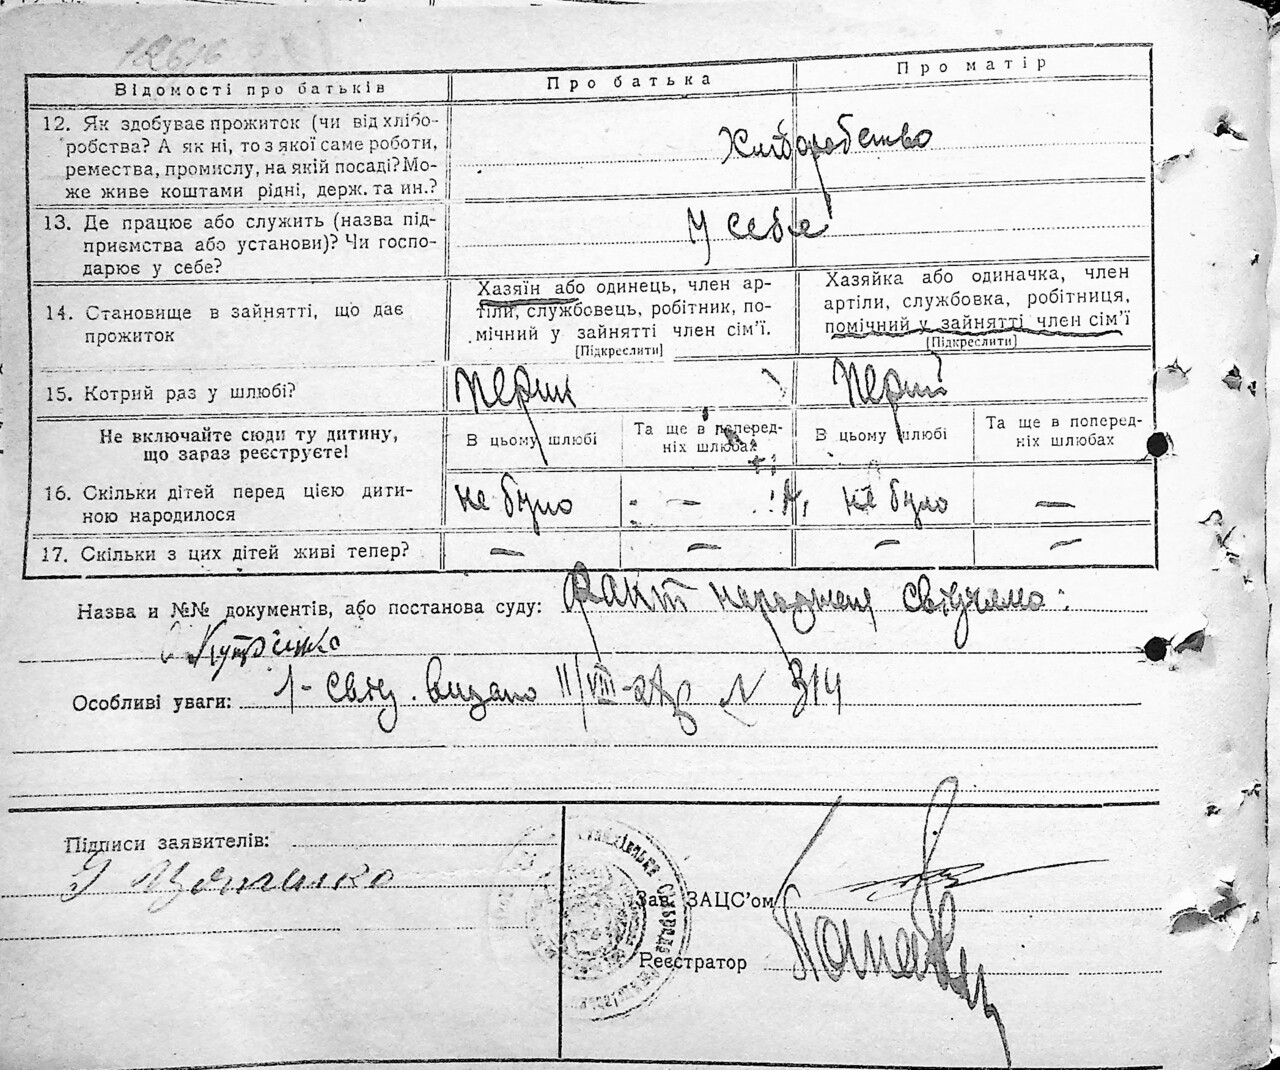 Відомості про батьків
Про батька
Про матір
12. Як здобуває прожиток (чи від хлібо-
робства? А як ні, то з якої саме роботи,
ремества, промислу, на якій посаді? Мо-
же живе коштами рідні, держ. та ин.?
Хліборобство
13. Де працює або служить (назва під-
приємства або установи)? Чи госпо-
дарює у себе?
У себе
14. Становище в зайнятті, що дає
прожиток
Хазяїн або одинець, член ар-
тіли, службовець, робітник, по-
мічний у зайнятті член сім’ї.
[Підкреслити]
Хазяйка або одиначка, член
артіли, службовка, робітниця,
помічний у зайнятті член сім’ї
[Підкреслити]
15. Котрий раз у шлюбі?
Не включайте сюди ту дитину,
що зараз реєструєте!
В цьому шлюбі
Та ще в поперед-
ніх шлюбах
В цьому шлюбі
Та ще в поперед-
ніх шлюбах
16. Скільки дітей перед цією дити-
ною народилося
не було
—
не було
—
17. Скільки з цих дітей живі тепер?
—
—
—
—
Назва и №№ документів, або постанова суду: Факт
Особливі уваги: 1- Свід. видано 11/VIII- N 314
Підписи заявителів:
Зав. ЗАЦС’ом
Реєстратор